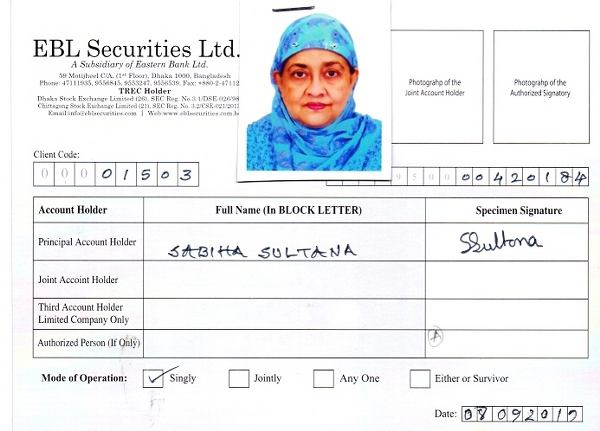 EBL Securities Ltd.
A Subsidiary of Eastern Bank Ltd.
59 Motijheel C/A. (1st Floor), Dhaka 1000, Bangladesh
Phone: 47111935, 9556845, 9553247, 9556539, Fax: +880-2-47112
TREC Holder
Dhaka Stock Exchange Limited (26), SEC Reg. No.3.1/DSE-026/98
Chittagong Stock Exchange Limited (21), SEC Reg. No. 3.2/CSE-021/201
Email:info@eblsecurities.com | Web:www.eblsecurities.com.b
Photograhp of the
Joint Account Holder
Photograhp of the
Authorized Signatory
Client Code:
0 0 0 0 1 5 0 3
9 5 0 0 0 0 4 2 0 1 8 4
Account Holder Full Name (In BLOCK LETTER) Specimen Signature
Principal Account Holder SABIHA SULTANA SSultana
Joint Accoint Holder
Third Account Holder
Limited Company Only
Authorized Person (If Only)
Mode of Operation: Singly Jointly Any One Either or Survivor
Date: 0 8 0 9 2 0 1